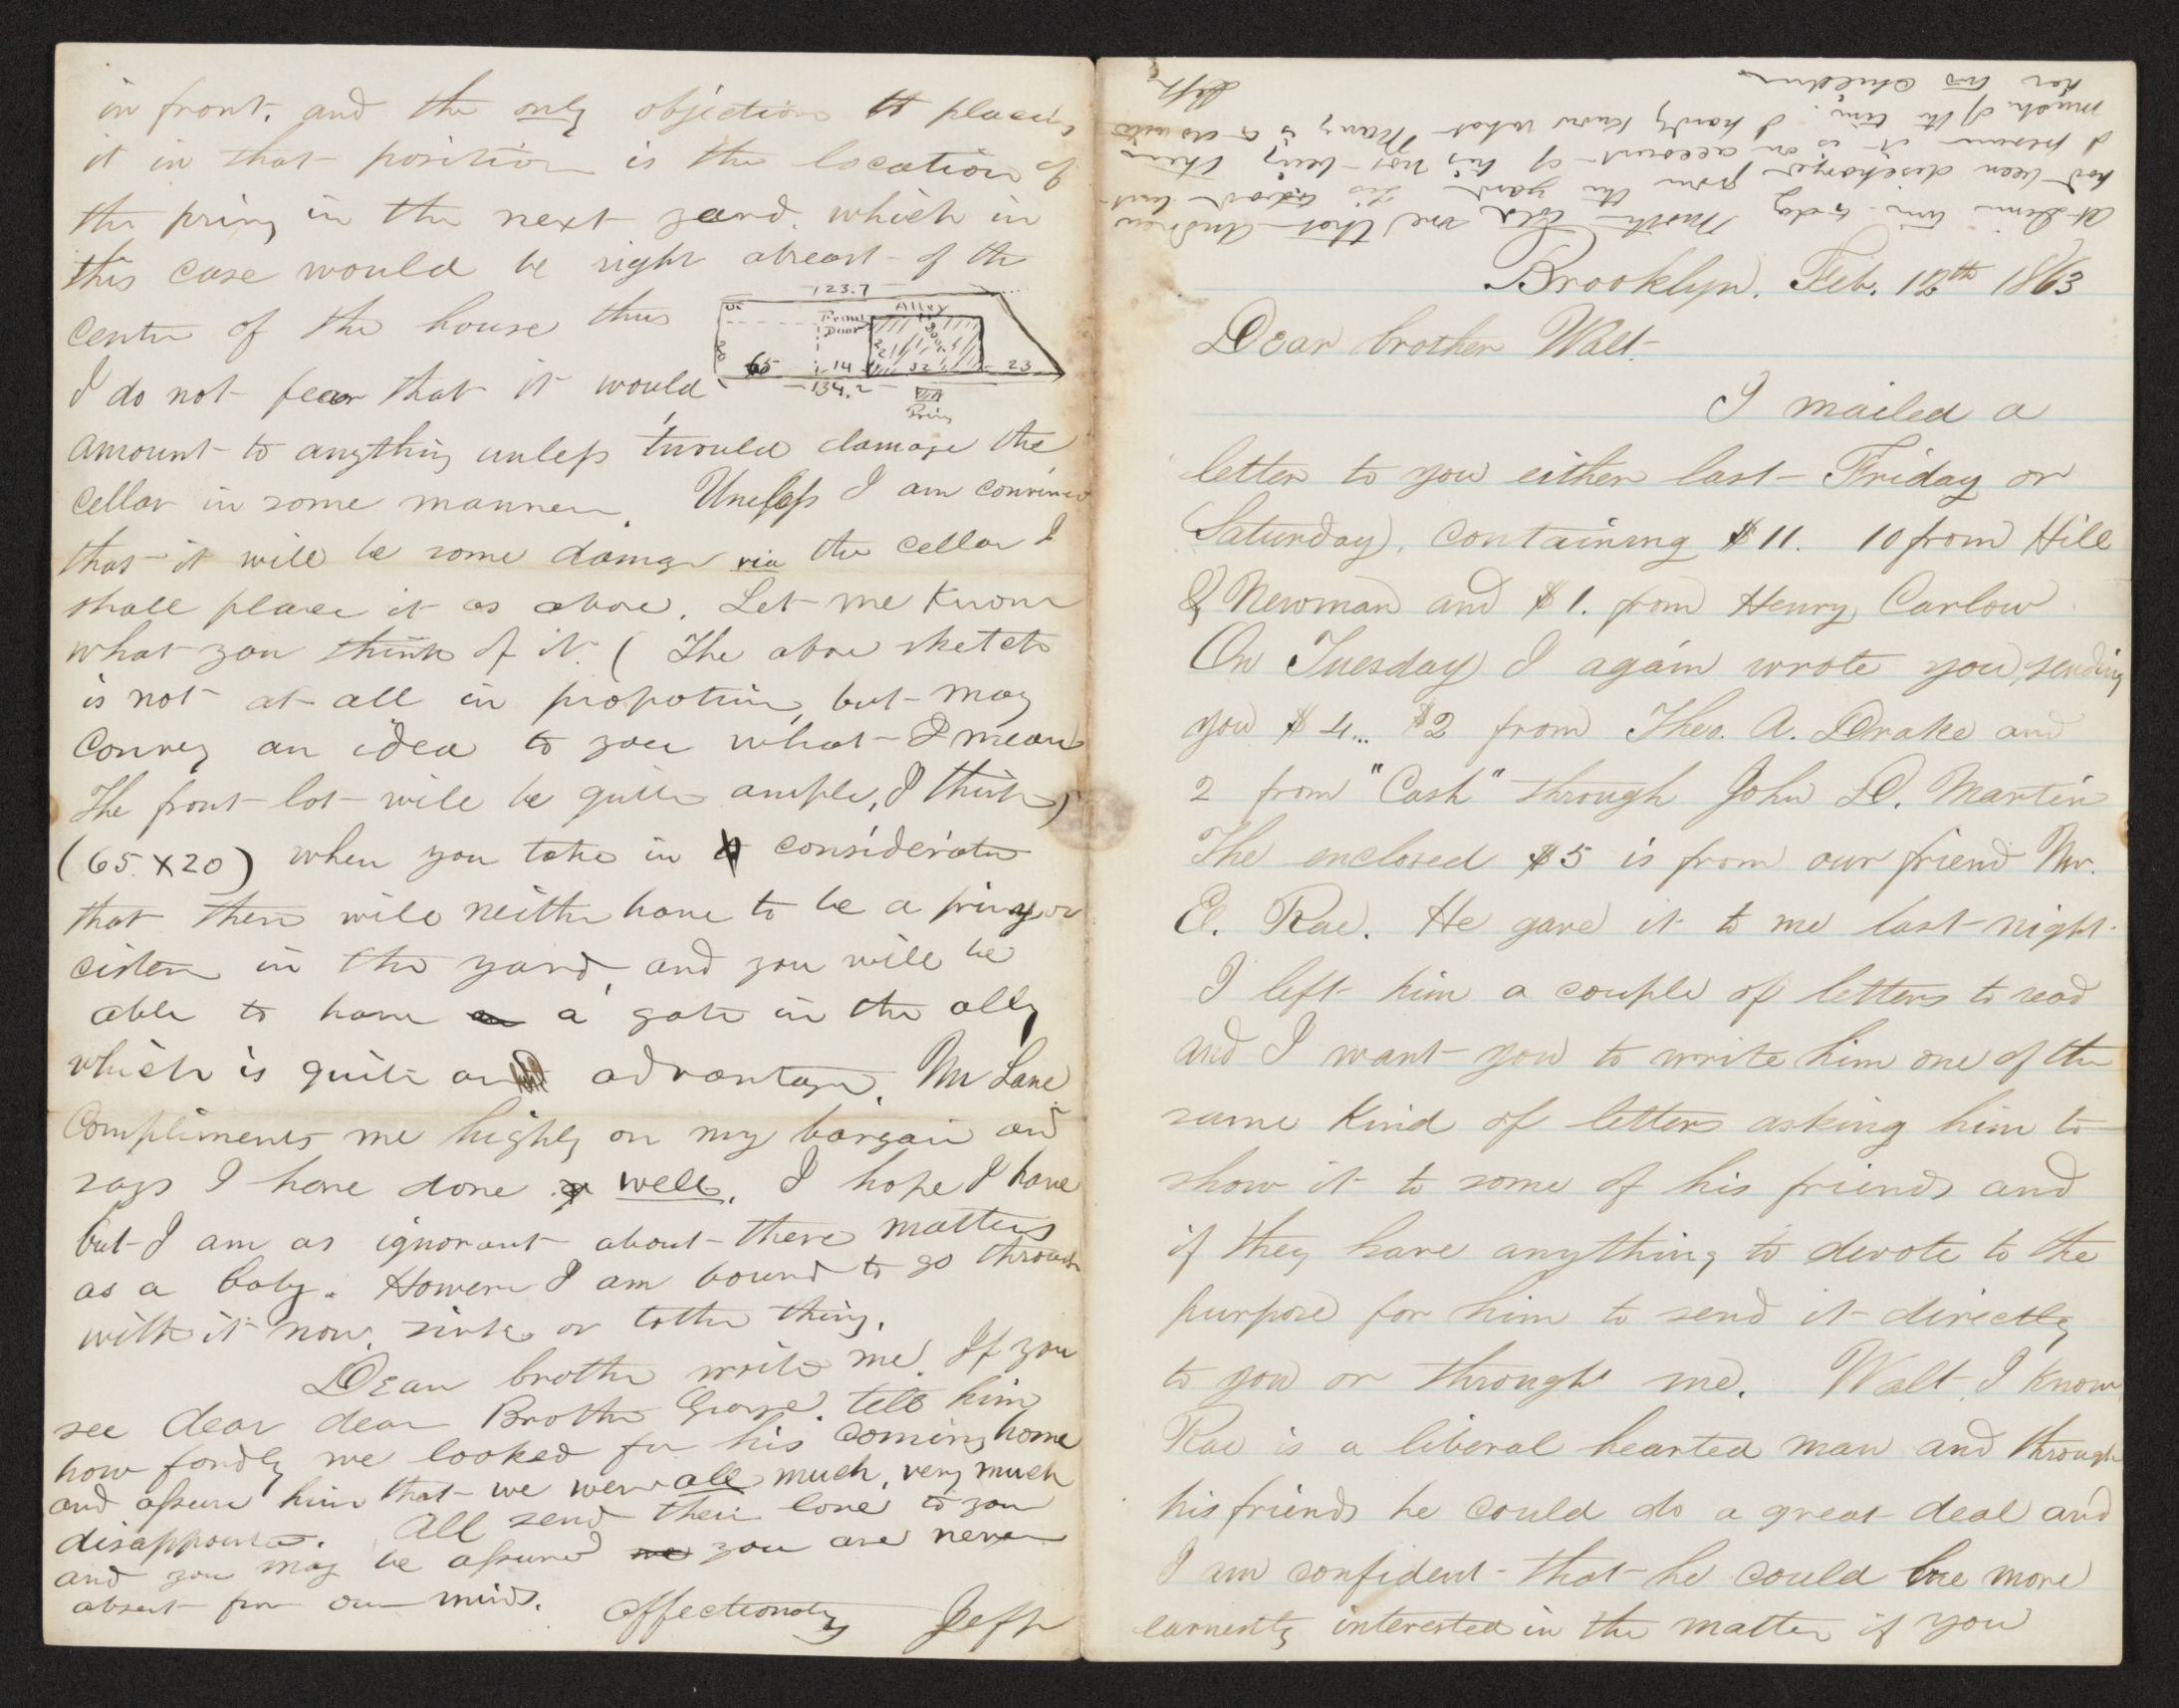 Brooklyn, Feb. 12th 1863
Dear brother Walt.
I mailed a
letter to you either last Friday or
(Saturday), containing $11. 10 from Hill
& Newman and $1. from Henry Carlow
On Tuesday I again wrote you, sending
you $4... $2 from Theo. A. Drake and
2 from "Cash" through John D. Martin
The enclosed $5 is from our friend Mr.
E. Rae. He gave it to me last night.
I left him a couple of letters to read
and I want you to write him one of the
same kind of letters asking him to
show it to some of his friends and
if they have anything to devote to the
purpose for him to send it directly
to you or through me. Walt, I know
Rae is a liberal hearted man and through
his friends he could do a great deal and
I am confident that he could be more
earnestly interested in the matter if you
in front, and the only objection to placing
it in that position is the location of
the privy in the next yard, which in
this case would be right abreast of the
centre of the house thus
123.7
Alley
Front
Door
20
65
14
32
23
134.2
Privy
I do not fear that it would
amount to anything unless 'twould damage the
cellar in some manner. Unless I am convinced
that it will be some damage via the cellar I
shall place it as above. Let me know
what you think of it. (The above sketch
is not at all in propotion, but may
convey an idea to you what I mean
The front lot will be quite ample, I think)
(65 X 20) when you take in consideration
that there will neither have to be a privy or
cistern in the yard, and you will be
able to have a gate in the ally
which is quite an advantage. Mr Lane
compliments me highly on my bargain and
says I have done well. I hope I have
but I am as ignorant about these matters
as a baby. However I am bound to go through
with it now, sink or tother thing.
Dear brother write me. If you
see dear dear Brother George, tell him
how fondly we looked for his coming home
and assure him that we were all much, very much
disappointed. All send their love to you
and you may be assured you are never
absent from our minds.
affectionately Jeff
at dinner time to-day Mother told me that Andrew
had been discharged from the yard
I presume it is on account of his not being there
much of the time. I hardly know what Nancy is to do with
her and children
Jeff